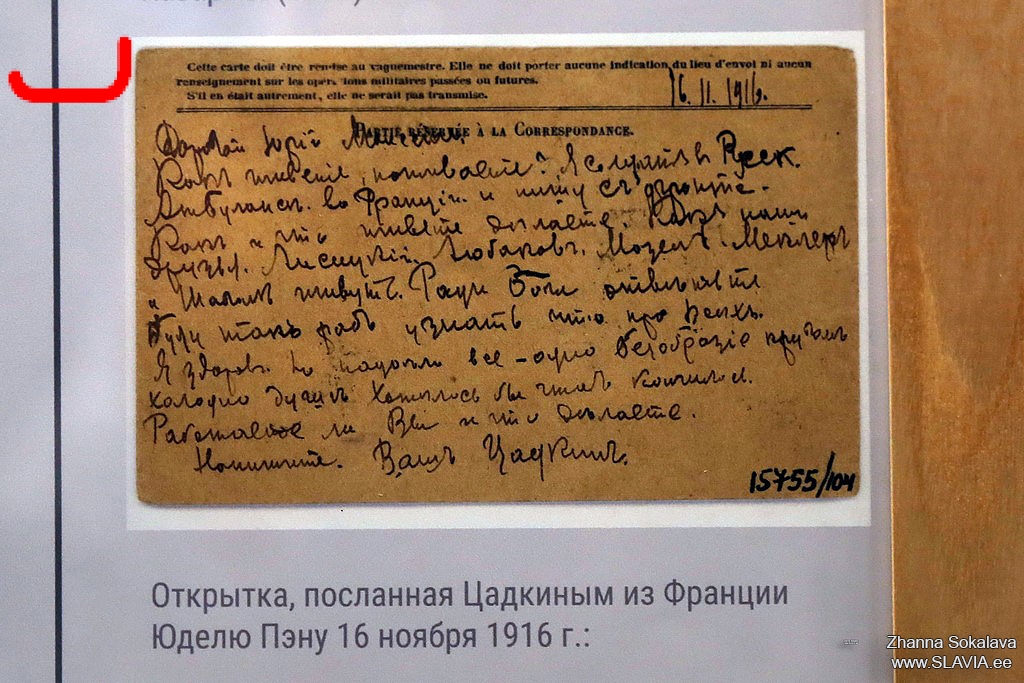 Cette carte doit être remise au vaguemestre. Elle ne doit porter aucune indication du lieu d'envoi ni aucun
renseignement sur les opérations militaires passées ou futures.
S'il en était autrement, elle ne serait pas transmise.
16. 11. 1916.
PARTIE RÉSERVÉE À LA CORRESPONDANCE.
Дорогой Юрій
Какъ живете, поживаете? Я служитъ в Русск.
Амбуланс. во Франціи. и пишу съ фронта.
Какъ и что живете дѣлаете. Какъ наши
друзья. Лисицкій. Любаковъ. Мазель. Мехлеръ
и Шагалъ живутъ. Ради Бога отвѣчайте
буду такъ радъ узнать что про всѣхъ.
Я здоровъ. но надоѣло все - одно безобразіе
холодно душѣ. Хотѣлось бы чтобъ кончилось.
Работаете ли Вы и что дѣлаете.
Напишите. Вашъ Цадкинъ.
15755/104
Открытка, посланная Цадкиным из Франции
Юделю Пэну 16 ноября 1916 г.:
Zhanna Sokalava
www.SLAVIA.ee